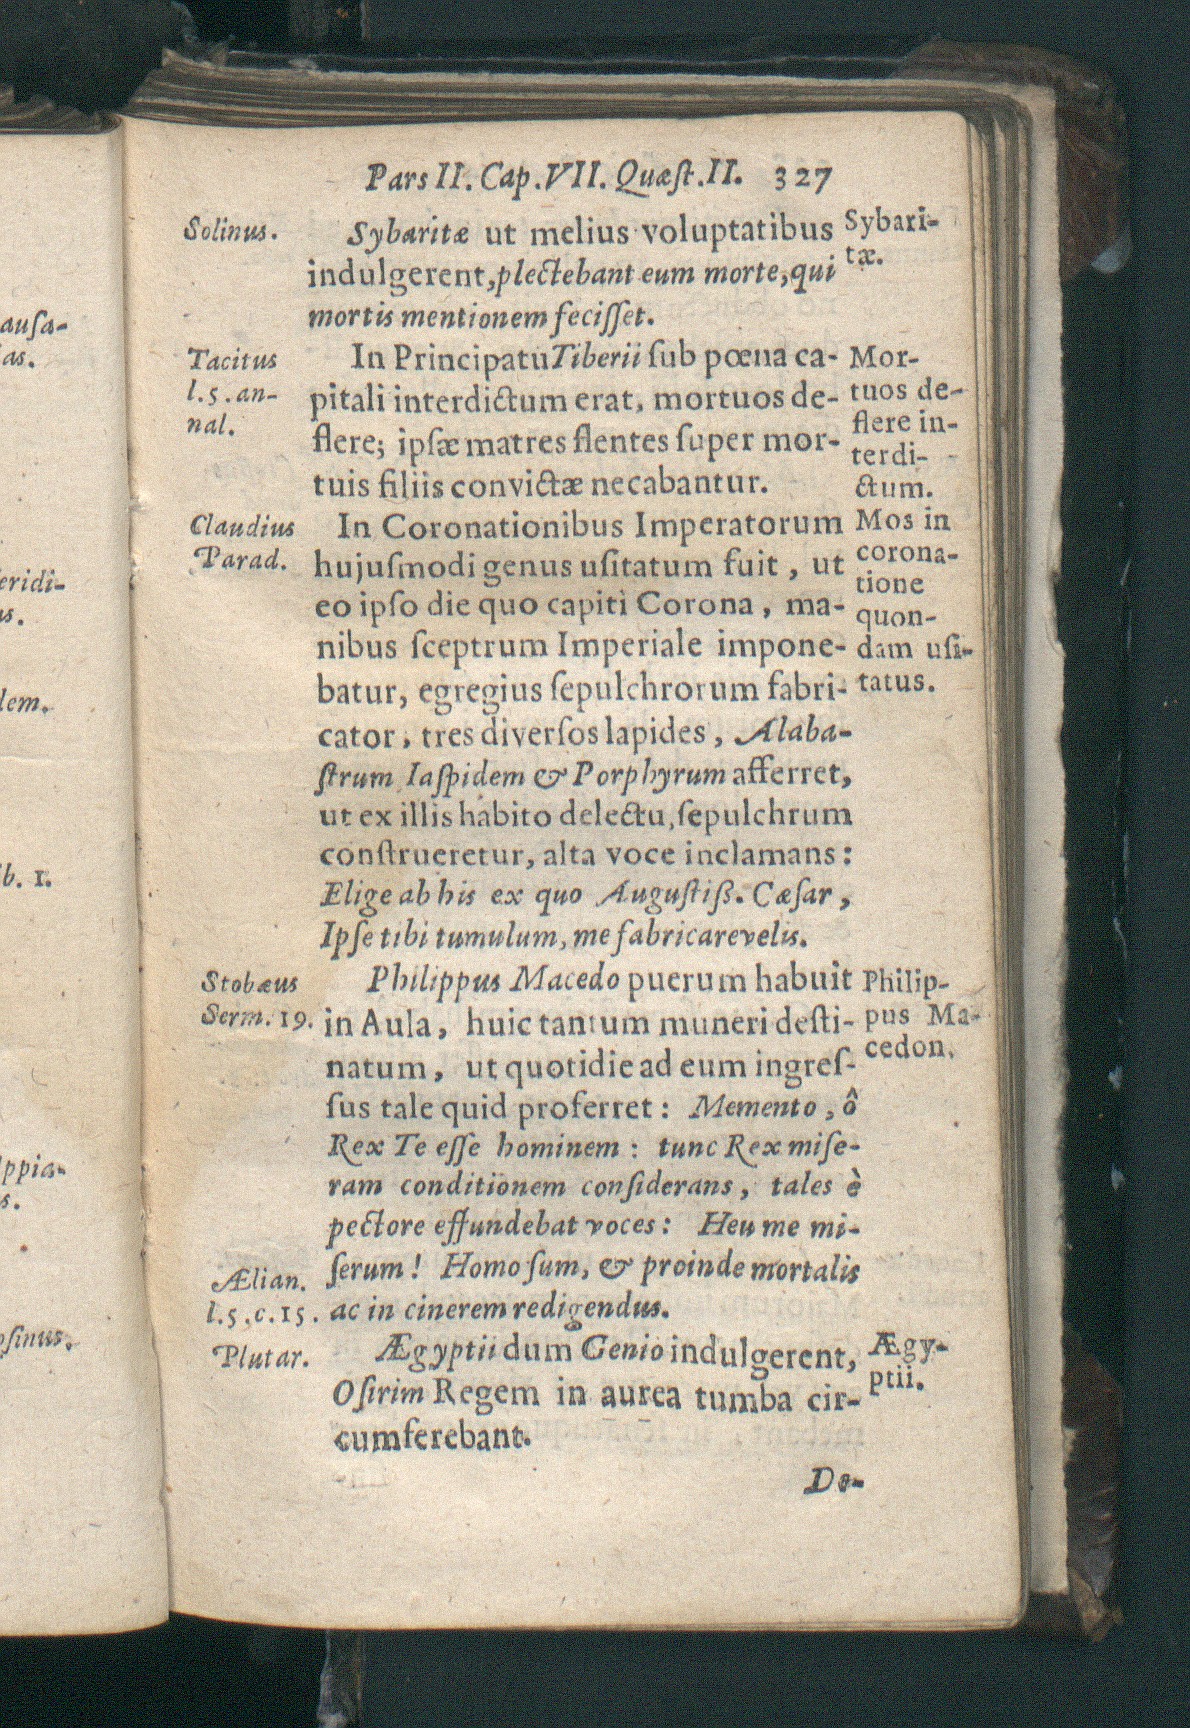 Pars II. Cap. VII. Quæſt. II. 327
Solinus.
Sybaritæ ut melius voluptatibus
indulgerent, plectebant eum morte, qui
mortis mentionem feciſſet.
Sybari-
tæ.
Tacitus
l. 5. an-
nal.
In Principatu Tiberii ſub pœna ca-
pitali interdictum erat, mortuos de-
flere; ipſæ matres flentes ſuper mor-
tuis filiis convictæ necabantur.
Mor-
tuos de-
flere in-
terdi-
ctum.
Claudius
Parad.
In Coronationibus Imperatorum
hujuſmodi genus uſitatum fuit, ut
eo ipſo die quo capiti Corona, ma-
nibus ſceptrum Imperiale impone-
batur, egregius ſepulchrorum fabri-
cator, tres diverſos lapides, Alaba-
ſtrum Iaſpidem & Porphyrum afferret,
ut ex illis habito delectu, ſepulchrum
conſtrueretur, alta voce inclamans:
Elige ab his ex quo Auguſtiß. Cæſar,
Ipſe tibi tumulum, me fabricare velis.
Mos in
corona-
tione
quon-
dam uſi-
tatus.
Stobæus
Serm. 19.
Philippus Macedo puerum habuit
in Aula, huic tantum muneri deſti-
natum, ut quotidie ad eum ingreſ-
ſus tale quid proferret: Memento, ô
Rex Te eſſe hominem: tunc Rex miſe-
ram conditionem conſiderans, tales è
pectore effundebat voces: Heu me mi-
ſerum! Homo ſum, & proinde mortalis
ac in cinerem redigendus.
Philip-
pus Ma-
cedon.
Ælian.
l. 5. c. 15.
Plutar.
Ægyptii dum Genio indulgerent,
Oſirim Regem in aurea tumba cir-
cumferebant.
Ægy-
ptii.
De-